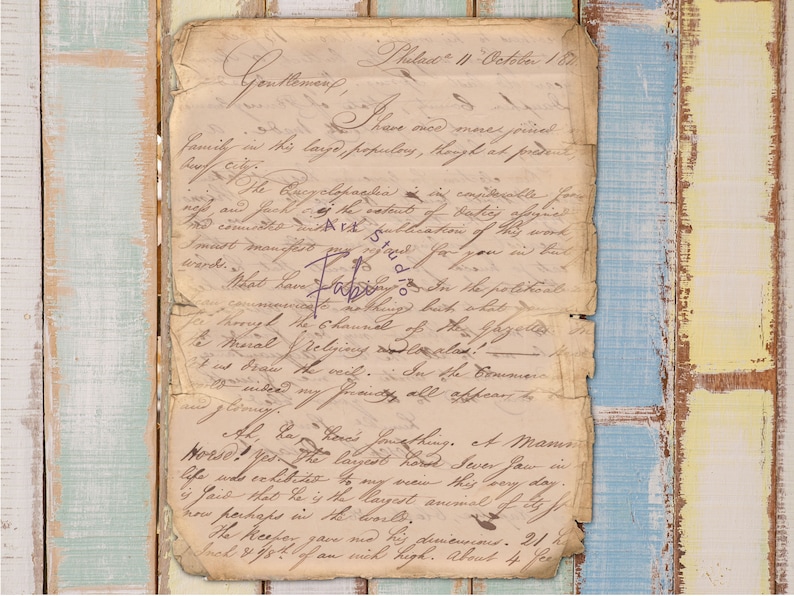 Philada 11 October 18
Gentlemen,
I have once more joined
family in this large, populous, though at present,
busy city.
The Encyclopaedia is in considerable for
ness, and such is the extent of duties assigned
and connected with publication of this work
I must manifest my regard for you in but
words.
What have In the political
can communicate nothing but what
through the Channel of the Gazette
the Moral & Religious world alas! —
us draw the veil. In the Commer
indeed my friends, all appears
and gloomy.
Ah, La, here's something. A Mamm
Horse! Yes. The largest horse I ever saw in
life was exhibited to my view this very day.
is said that he is the largest animal of its sp
now perhaps in the world.
The Keeper gave me his dimensions. 21 h
Inch & 7/8th of an inch high. About 4 fee
Art Studio
Fabi